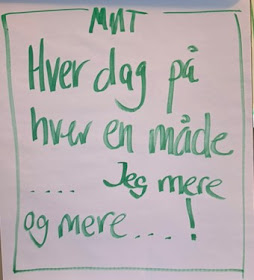 MMT
Hver dag på
hver en måde
.... Jeg mere
og mere ... !